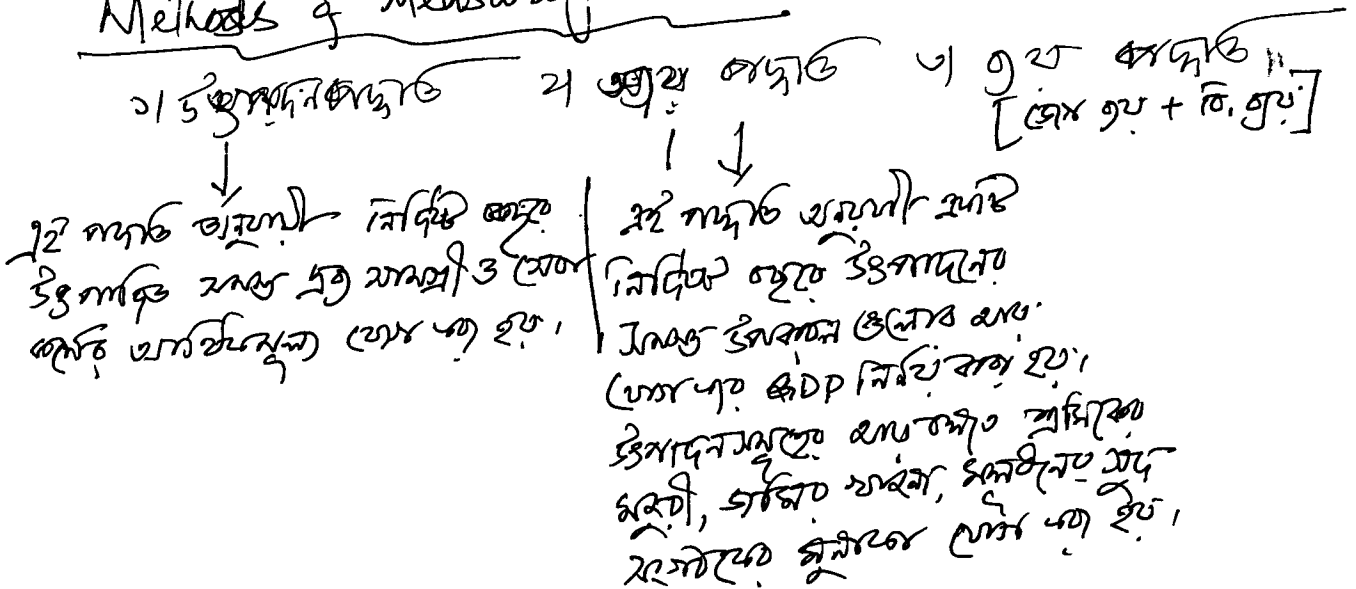 Methods of
১। উৎপাদন পদ্ধতি ২। আয় পদ্ধতি ৩। ব্যয় পদ্ধতি
[ভোগ ব্যয় + বি. ব্যয়]
এই পদ্ধতি অনুযায়ী নির্দিষ্ট বছরে
উৎপাদিত সমস্ত দ্রব্য সামগ্রী ও সেবা
কর্মের আর্থিকমূল্য যোগ করা হয়।
এই পদ্ধতি অনুযায়ী একটি
নির্দিষ্ট বছরে উৎপাদনের
সমস্ত উপকরণ গুলোর আয়
যোগ করে GDP নির্ণয় করা হয়।
উৎপাদনসমূহের আয় বলতে শ্রমিকের
মজুরী, জমির খাজনা, মূলধনের সুদ
সংগঠকের মুনাফা যোগ করা হয়।